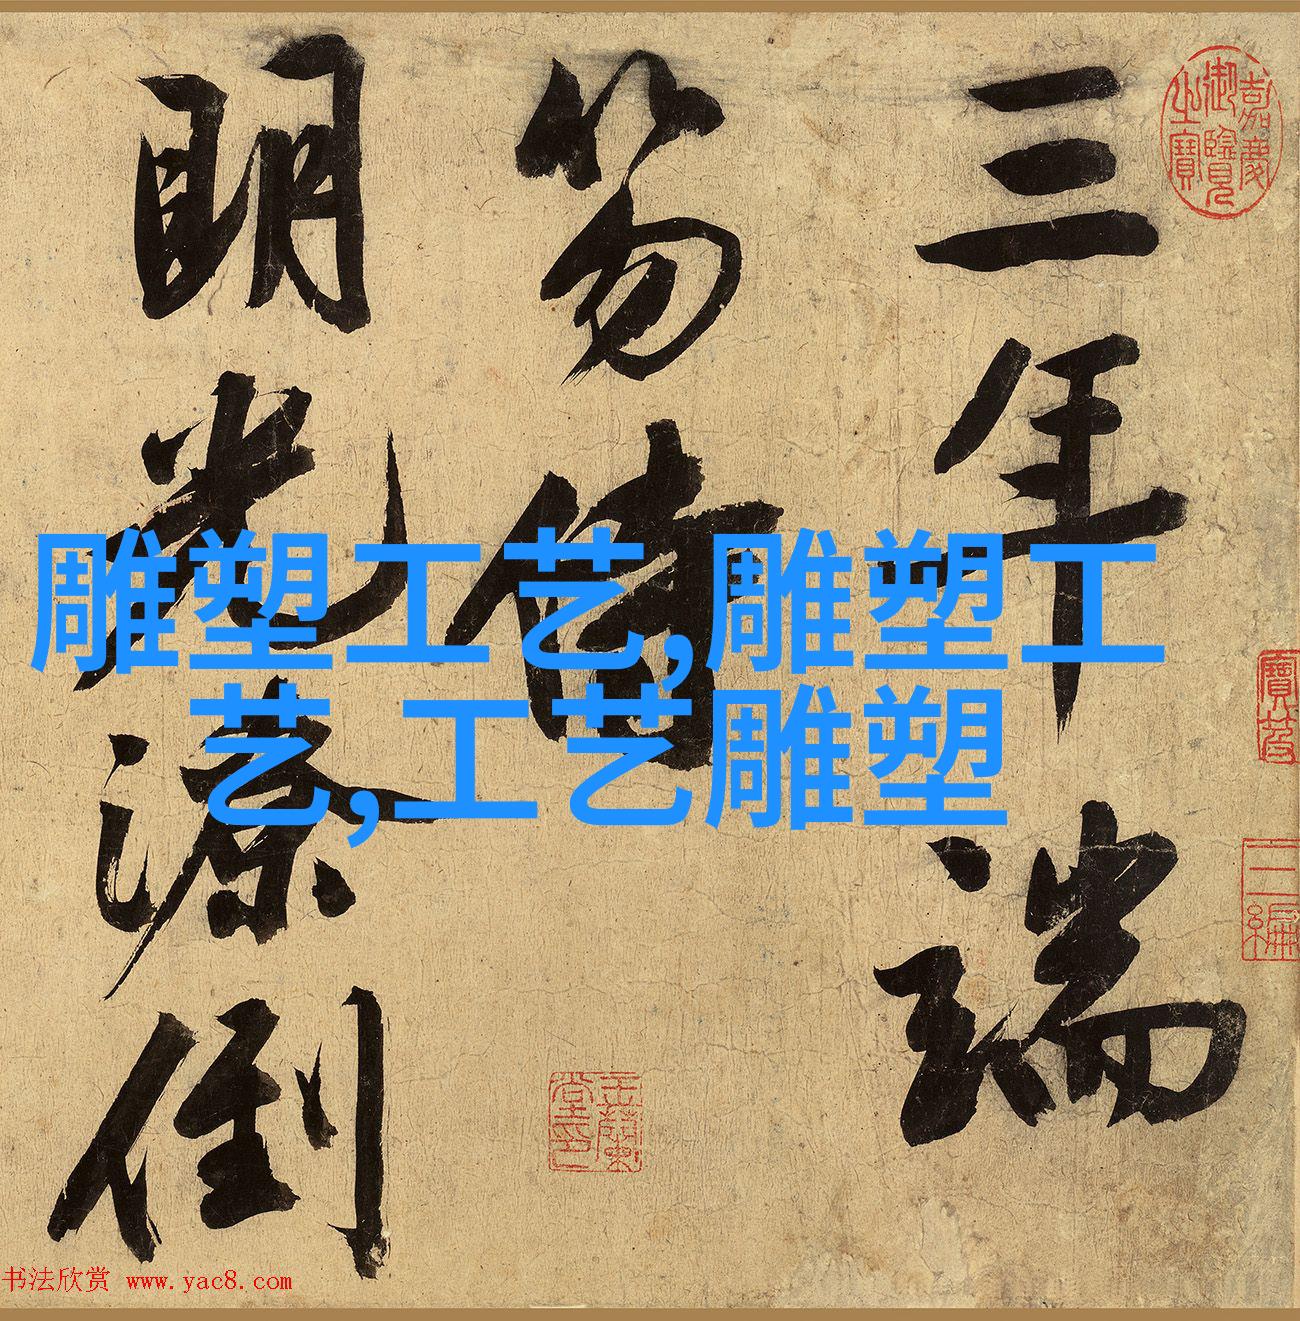 三年瑞
笏備
明光源倒
嘉慶
御覽
之寶
雕塑工艺,雕塑工
艺,工艺雕塑
书法欣赏 www.yac8.com